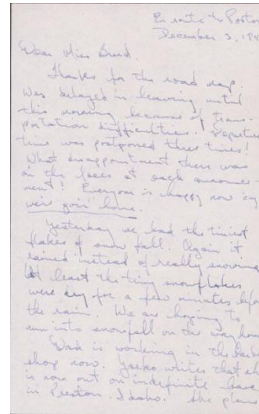 En route to Poston
December 3, 194
Dear Miss Breed,
Thanks for the road map.
Was delayed in leaving until
this morning because of trans-
portation difficulties. Departure
time was postponed three times!
What disappointment there was
on the faces at each announce-
ment! Everyone is happy now cuz
we're goin' home.
Yesterday we had the tiniest
flakes of snow fall. Again it
rained instead of really snowing.
At least the tiny snowflakes
were dry for a few minutes before
the rain. We are hoping to
run into snowfall on the way home.
is working in the
shop now. writes that she
is now out on indefinite leave
in Preston, Idaho. She plans